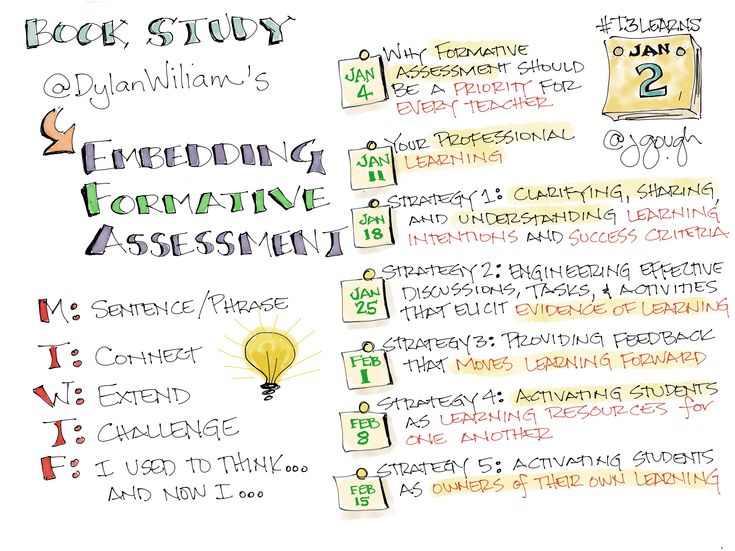 BOOK STUDY
@DylanWiliam's
EMBEDDING
FORMATIVE
ASSESSMENT
M: SENTENCE/PHRASE
T: CONNECT
W: EXTEND
T: CHALLENGE
F: I USED TO THINK...
AND NOW I...
JAN
4
WHY FORMATIVE
ASSESSMENT SHOULD
BE A PRIORITY FOR
EVERY TEACHER
JAN
11
YOUR PROFESSIONAL
LEARNING
JAN
18
STRATEGY 1: CLARIFYING, SHARING,
AND UNDERSTANDING LEARNING
INTENTIONS AND SUCCESS CRITERIA.
JAN
25
STRATEGY 2: ENGINEERING EFFECTIVE
DISCUSSIONS, TASKS, & ACTIVITIES
THAT ELICIT EVIDENCE OF LEARNING
FEB
1
STRATEGY 3: PROVIDING FEEDBACK
THAT MOVES LEARNING FORWARD
FEB
8
STRATEGY 4: ACTIVATING STUDENTS
AS LEARNING RESOURCES for
ONE ANOTHER
FEB
15
STRATEGY 5: ACTIVATING STUDENTS
AS OWNERS of THEIR OWN LEARNING
#T3LEARNS
JAN
2
@jgough